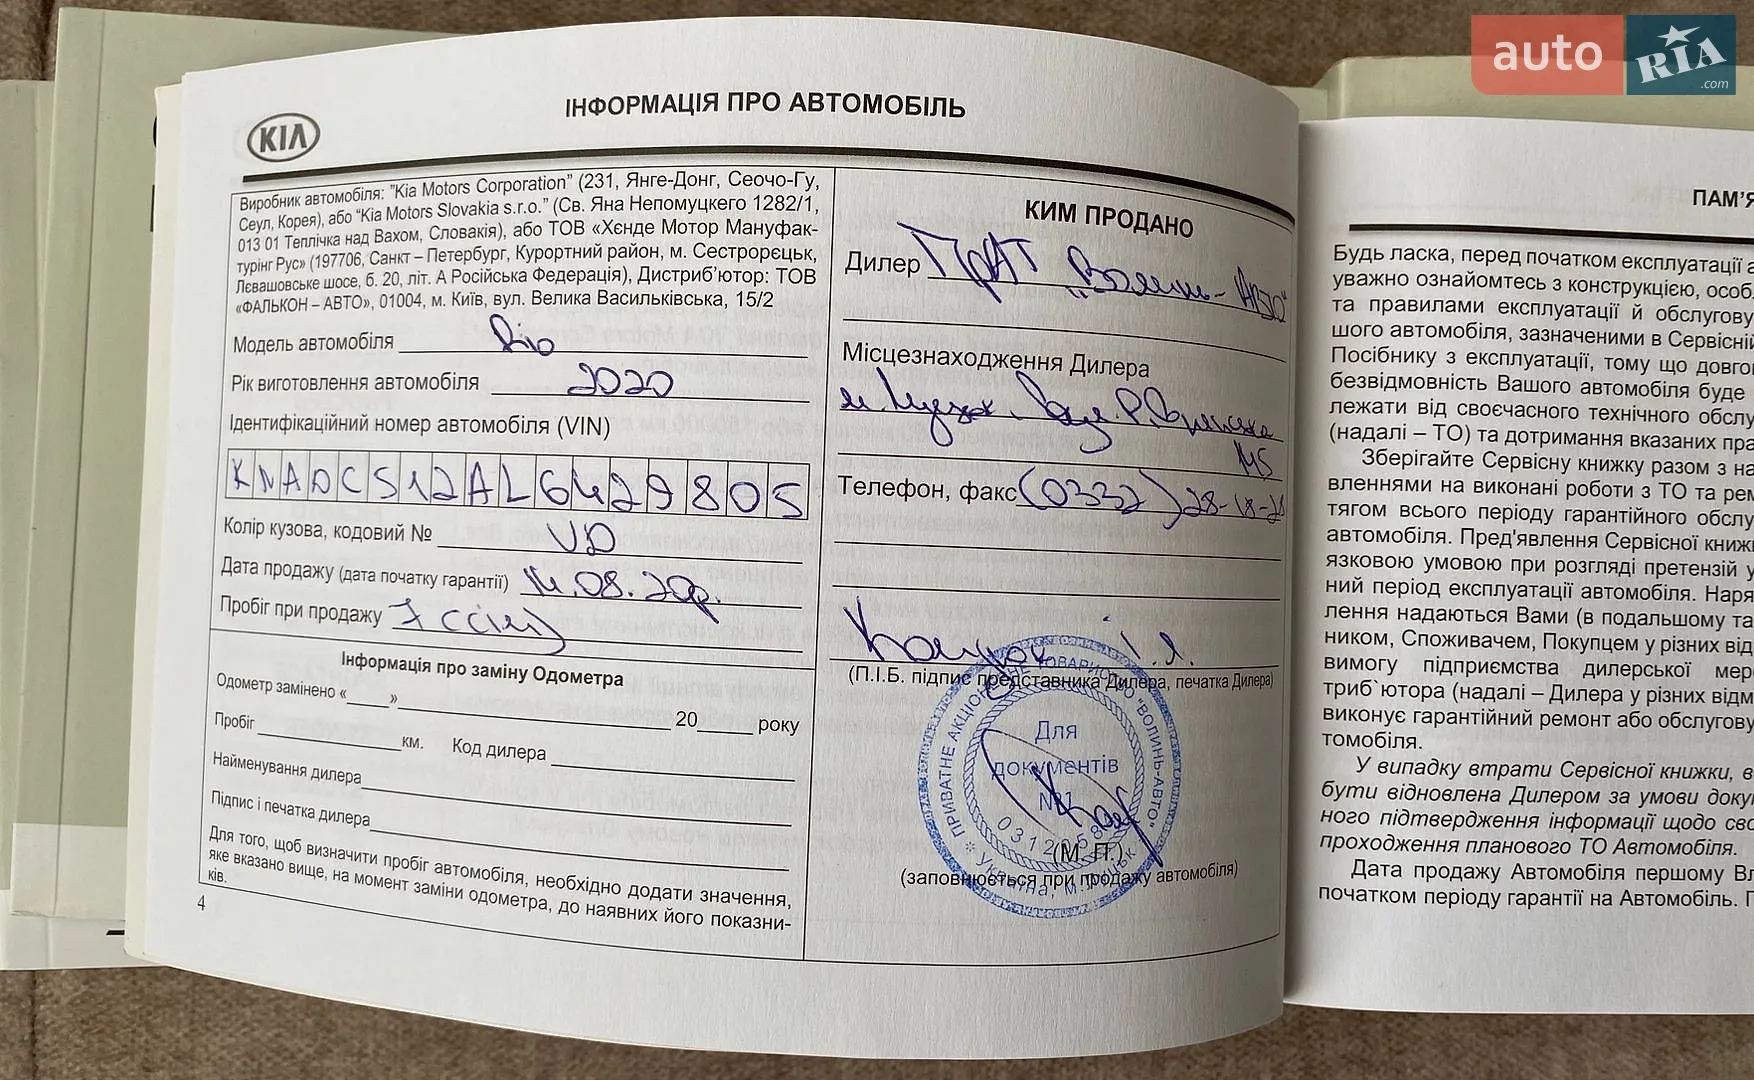 auto RIA.com
KIA
ІНФОРМАЦІЯ ПРО АВТОМОБІЛЬ
Виробник автомобіля: "Kia Motors Corporation" (231, Янге-Донг, Сеочо-Гу,
Сеул, Корея), або "Kia Motors Slovakia s.r.o." (Св. Яна Непомуцкего 1282/1,
013 01 Теплічка над Вахом, Словакія), або ТОВ «Хєнде Мотор Мануфак-
турінг Рус» (197706, Санкт – Петербург, Курортний район, м. Сестрорецьк,
Лєвашовське шосе, б. 20, літ. А Російська Федерація), Дистриб'ютор: ТОВ
«ФАЛЬКОН – АВТО», 01004, м. Київ, вул. Велика Васильківська, 15/2
Модель автомобіля Rio
Рік виготовлення автомобіля 2020
Ідентифікаційний номер автомобіля (VIN)
KNADC512AL6429805
Колір кузова, кодовий № UD
Дата продажу (дата початку гарантії) 14.08.20р.
Пробіг при продажу 7 (сім)
Інформація про заміну Одометра
Одометр замінено «____» 20____ року
Пробіг ____ км. Код дилера
Найменування дилера
Підпис і печатка дилера
Для того, щоб визначити пробіг автомобіля, необхідно додати значення,
яке вказано вище, на момент заміни одометра, до наявних його показни-
ків.
4
КИМ ПРОДАНО
Дилер ПрАТ "Волинь-Авто"
Місцезнаходження Дилера
м. Луцьк
145
Телефон, факс (0332) 28-18-28
І.Я.
(П.І.Б. підпис представника Дилера, печатка Дилера)
ПРИВАТНЕ АКЦІОНЕРНЕ ТОВАРИСТВО "ВОЛИНЬ-АВТО"
Для
документів
№1
Україна, м. Луцьк
(М. П.)
(заповнюється при продажу автомобіля)
ПАМ'Я
Будь ласка, перед початком експлуатації а
уважно ознайомтесь з конструкцією, особл
та правилами експлуатації й обслугову
шого автомобіля, зазначеними в Сервісній
Посібнику з експлуатації, тому що довгов
безвідмовність Вашого автомобіля буде
лежати від своєчасного технічного обслу
(надалі – ТО) та дотримання вказаних пра
Зберігайте Сервісну книжку разом з на
вленнями на виконані роботи з ТО та рем
тягом всього періоду гарантійного обслу
автомобіля. Пред'явлення Сервісної книжк
язковою умовою при розгляді претензій у
ний період експлуатації автомобіля. Наря
лення надаються Вами (в подальшому та
ником, Споживачем, Покупцем у різних від
вимогу підприємства дилерської мер
триб`ютора (надалі – Дилера у різних відм
виконує гарантійний ремонт або обслугову
томобіля.
У випадку втрати Сервісної книжки, в
бути відновлена Дилером за умови доку
ного підтвердження інформації щодо сво
проходження планового ТО Автомобіля.
Дата продажу Автомобіля першому Вл
початком періоду гарантії на Автомобіль. П